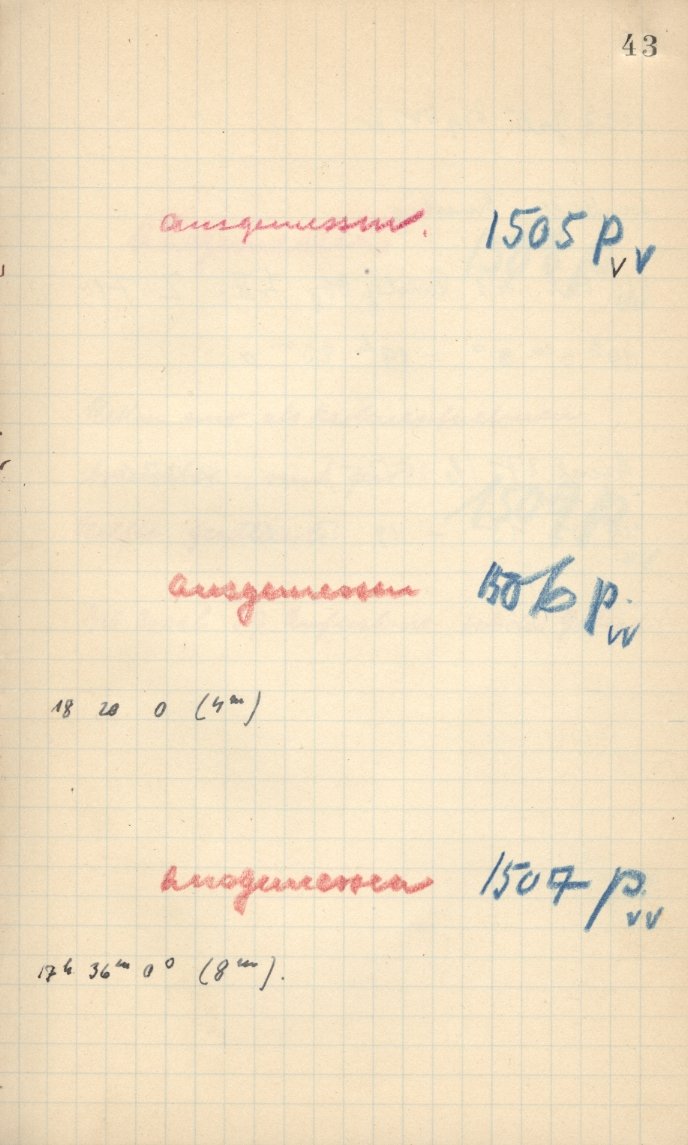 43
ausgemessen. 1505 p v v
ausgemessen 1506 p. vv
18 20 0 (4ᵐ)
Ausgemessen 1507 p. vv
17ʰ 36ᵐ 0⁰ (8ᵐ).